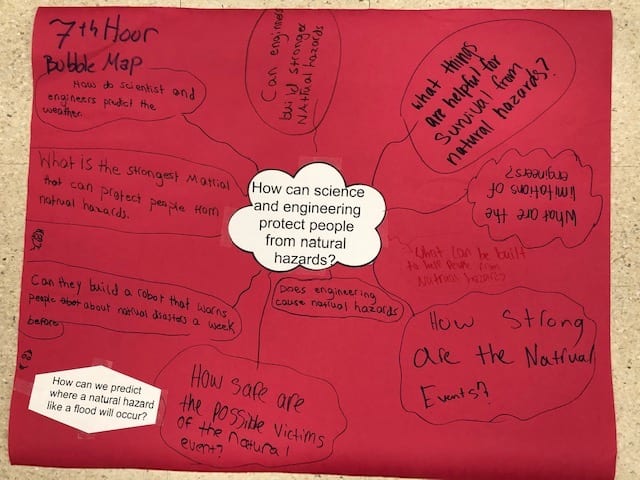 7th Hour
Bubble Map
How do scientist and
engineers predict the
weather.
Can engineers
build stronger
NAtural hazards
What things
are helpful for
Survival from
natural hazards?
What is the strongest Matrial
that can protect people from
natrual hazards.
How can science
and engineering
protect people
from natural
hazards?
What are the
limitations of
engineers?
What can be built
to help People from
Natrual hazards
Can they build a robot that warns
people about natrual disasters a week
before
Does engineering
cause natrual hazards
How Strong
are the Natrual
Events?
How can we predict
where a natural hazard
like a flood will occur?
How safe are
the possible victims
of the natural
event?